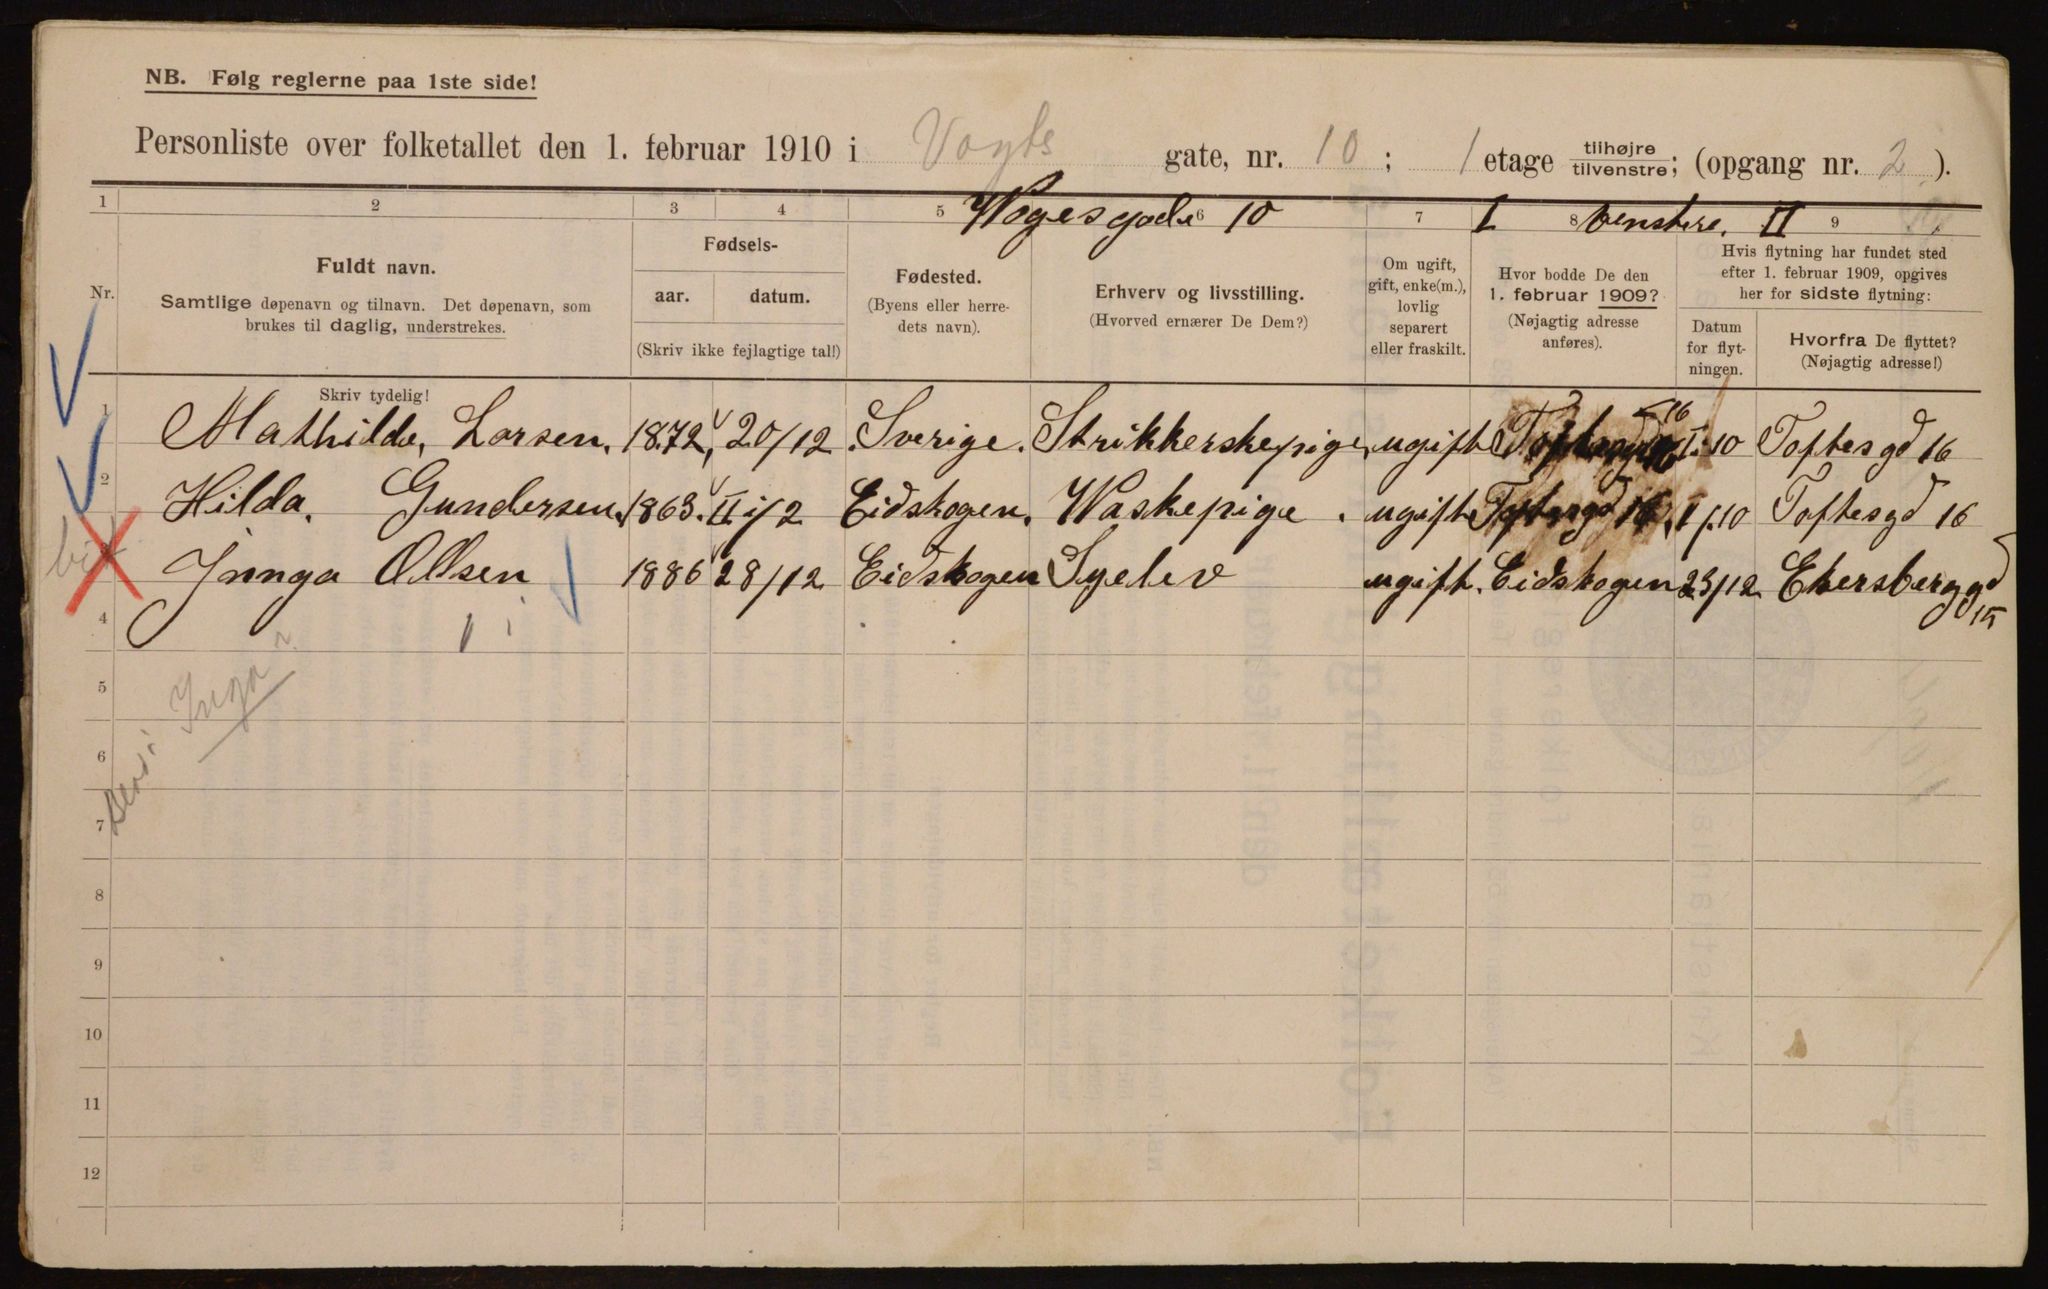 NB. Følg reglerne paa 1ste side!
Personliste over folketallet den 1. februar 1910 i Vogts gate, nr. 10; 1 etage tilhøjre tilvenstre; (opgang nr. 2).
1 2 3 4 5 6 7 8 9
Wogesgade 10 I venstre. II
Nr.
Fuldt navn.
Samtlige døpenavn og tilnavn. Det døpenavn, som
brukes til daglig, understrekes.
Fødsels-
aar. datum.
(Skriv ikke fejlagtige tal!)
Fødested.
(Byens eller herre-
dets navn).
Erhverv og livsstilling.
(Hvorved ernærer De Dem?)
Om ugift,
gift, enke(m.),
lovlig
separert
eller fraskilt.
Hvor bodde De den
1. februar 1909?
(Nøjagtig adresse
anføres).
Hvis flytning har fundet sted
efter 1. februar 1909, opgives
her for sidste flytning:
Datum
for flyt-
ningen.
Hvorfra De flyttet?
(Nøjagtig adresse!)
Skriv tydelig!
1 Mathilde, Larsen, 1872, 20/12 Sverige. Strikkerskepige, ugift 16 I 10 Toftesgd 16
2 Hilda, Gundersen, 1863. II i/2 Eidskogen. Waskepige. ugift Toftesgd 16, I/10 Toftesgd 16
3 Jnnga Ollsen 1886 28/12 Eidskogen Syelev ugift. Eidskogen 23/12 Ekersberggd 15
4
5
Inga
6
7
8
9
10
11
12